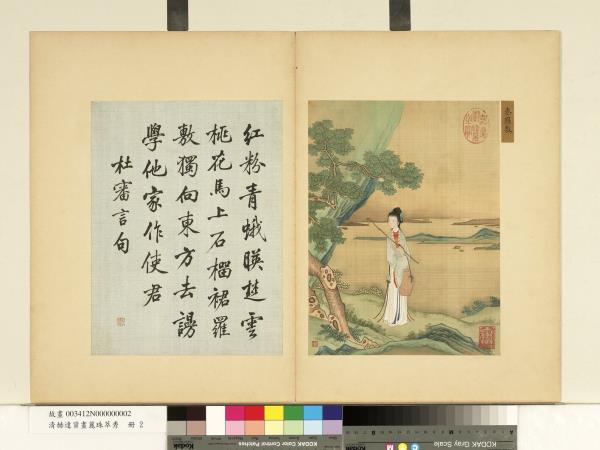 秦羅敷
紅粉青蛾暎楚雲
桃花馬上石榴裙羅
敷獨向東方去謾
學他家作使君
杜審言句
故畫 003412N000000002
清赫達資畫麗珠萃秀 冊 2
Kodak Color Control Patches
Kodak
KODAK Gray Scale